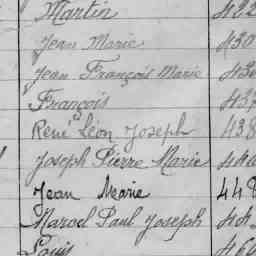 Martin
Jean Marie 430
Jean François Marie
François
René Léon Joseph 438
Joseph Pierre Marie
Jean Marie 448
Marcel Paul Joseph
Louis